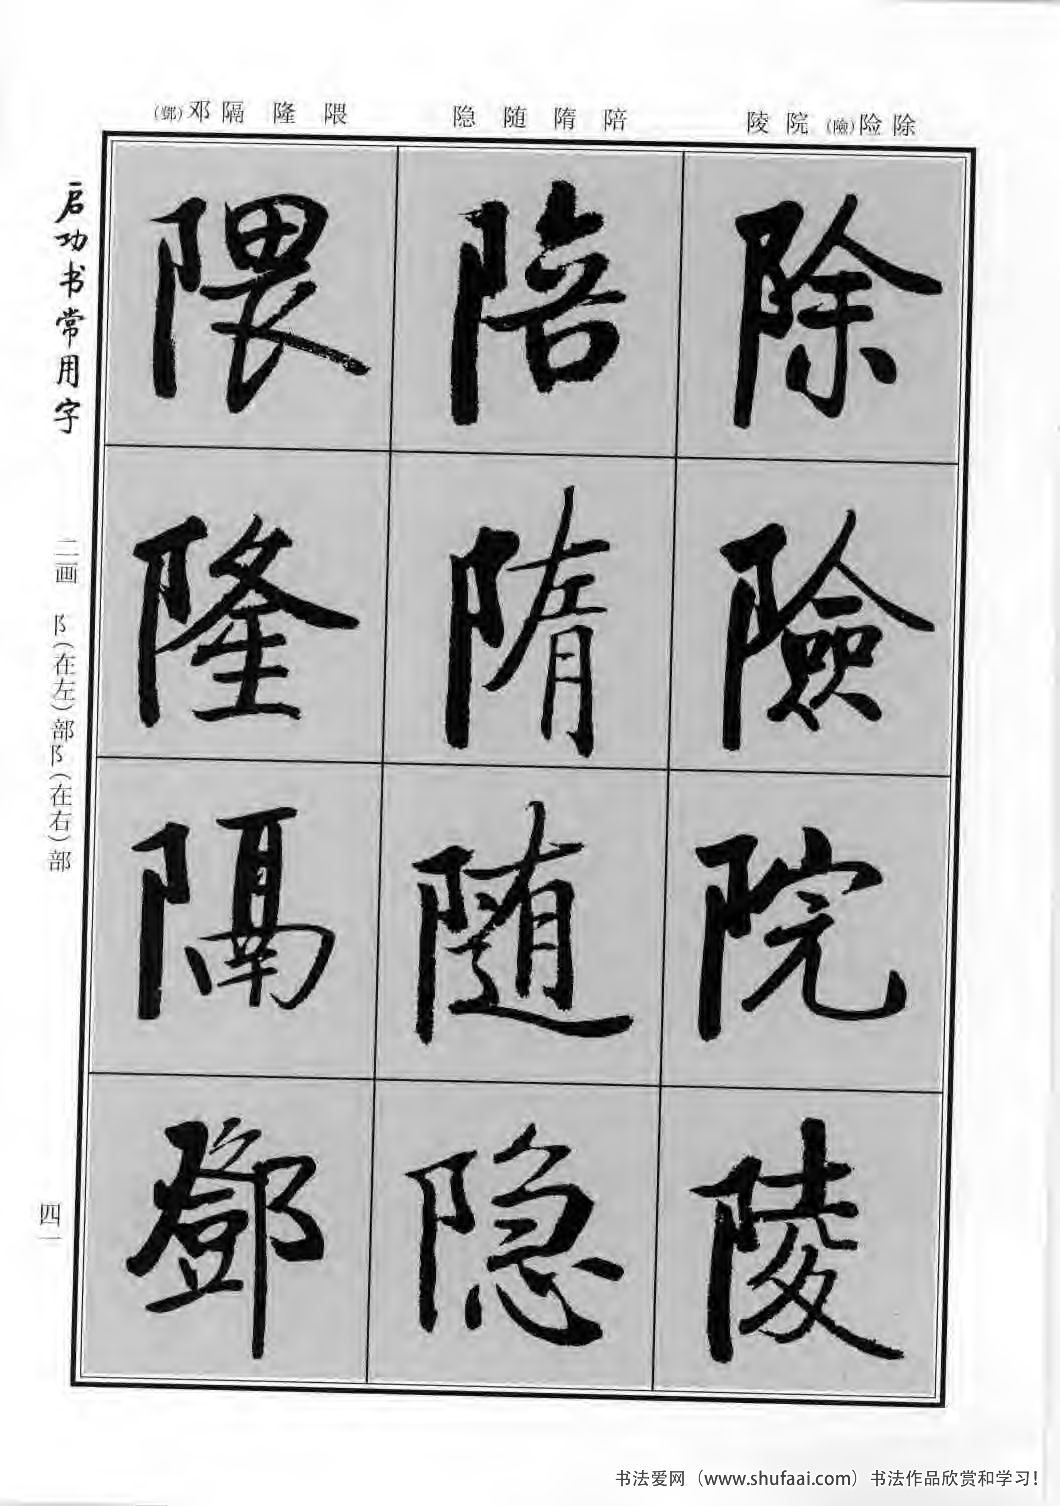 除险(險)院陵
陪隋随隐
隈隆隔邓(鄧)
除
險
院
陵
陪
隋
随
隐
隈
隆
隔
鄧
启功书常用字
二画 阝(在左)部阝(在右)部
四一
书法爱网（www.shufaai.com）书法作品欣赏和学习！